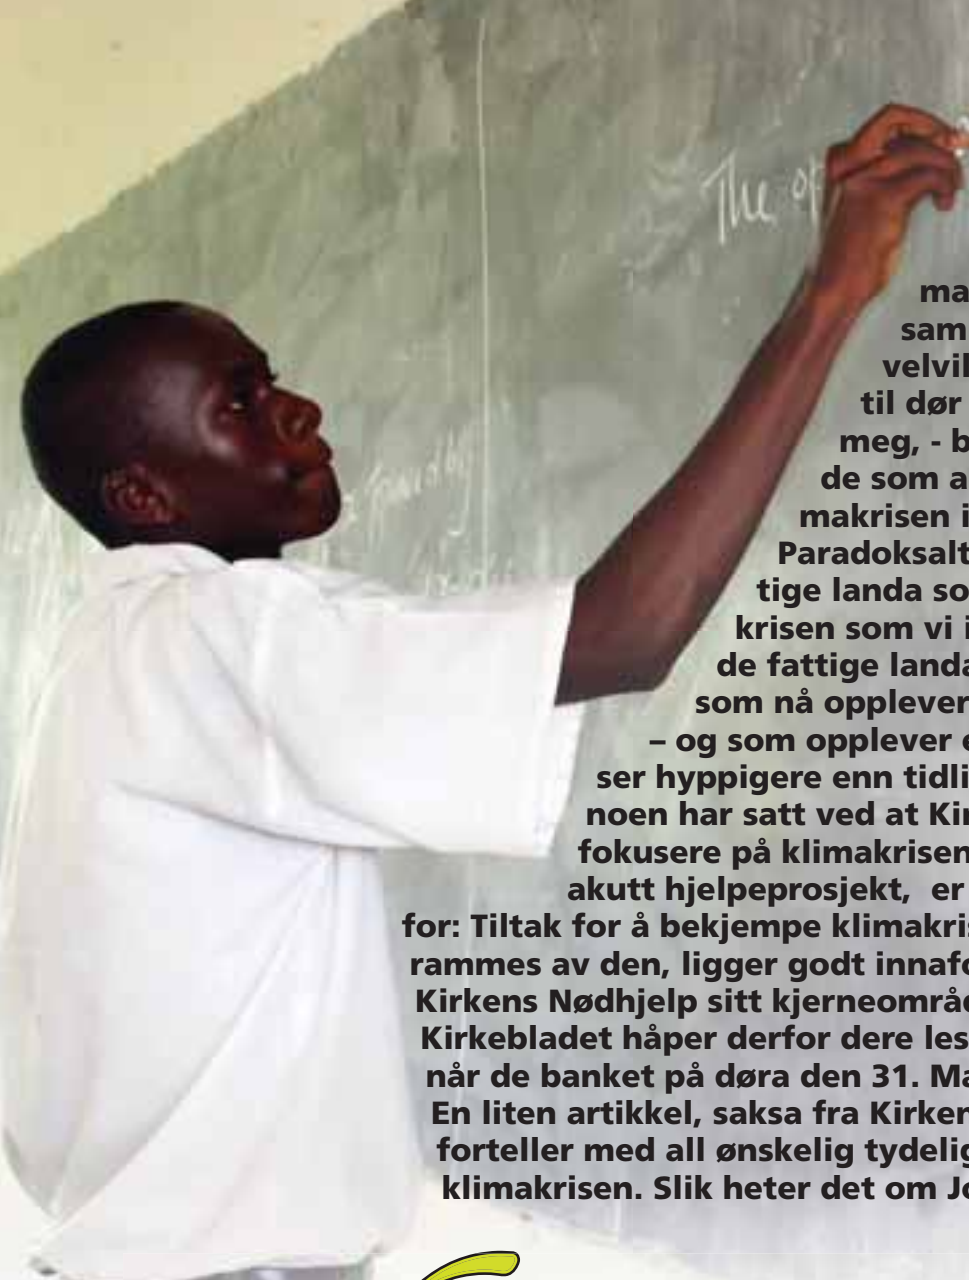 The op
ma
sam
velvil
til dør
meg, - b
de som a
makrisen i
Paradoksalt
tige landa so
krisen som vi i
de fattige landa
som nå opplever
– og som opplever e
ser hyppigere enn tidli
noen har satt ved at Kir
fokusere på klimakrisen
akutt hjelpeprosjekt, er
for: Tiltak for å bekjempe klimakris
rammes av den, ligger godt innafo
Kirkens Nødhjelp sitt kjerneområd
Kirkebladet håper derfor dere les
når de banket på døra den 31. Ma
En liten artikkel, saksa fra Kirken
forteller med all ønskelig tydelig
klimakrisen. Slik heter det om Jo